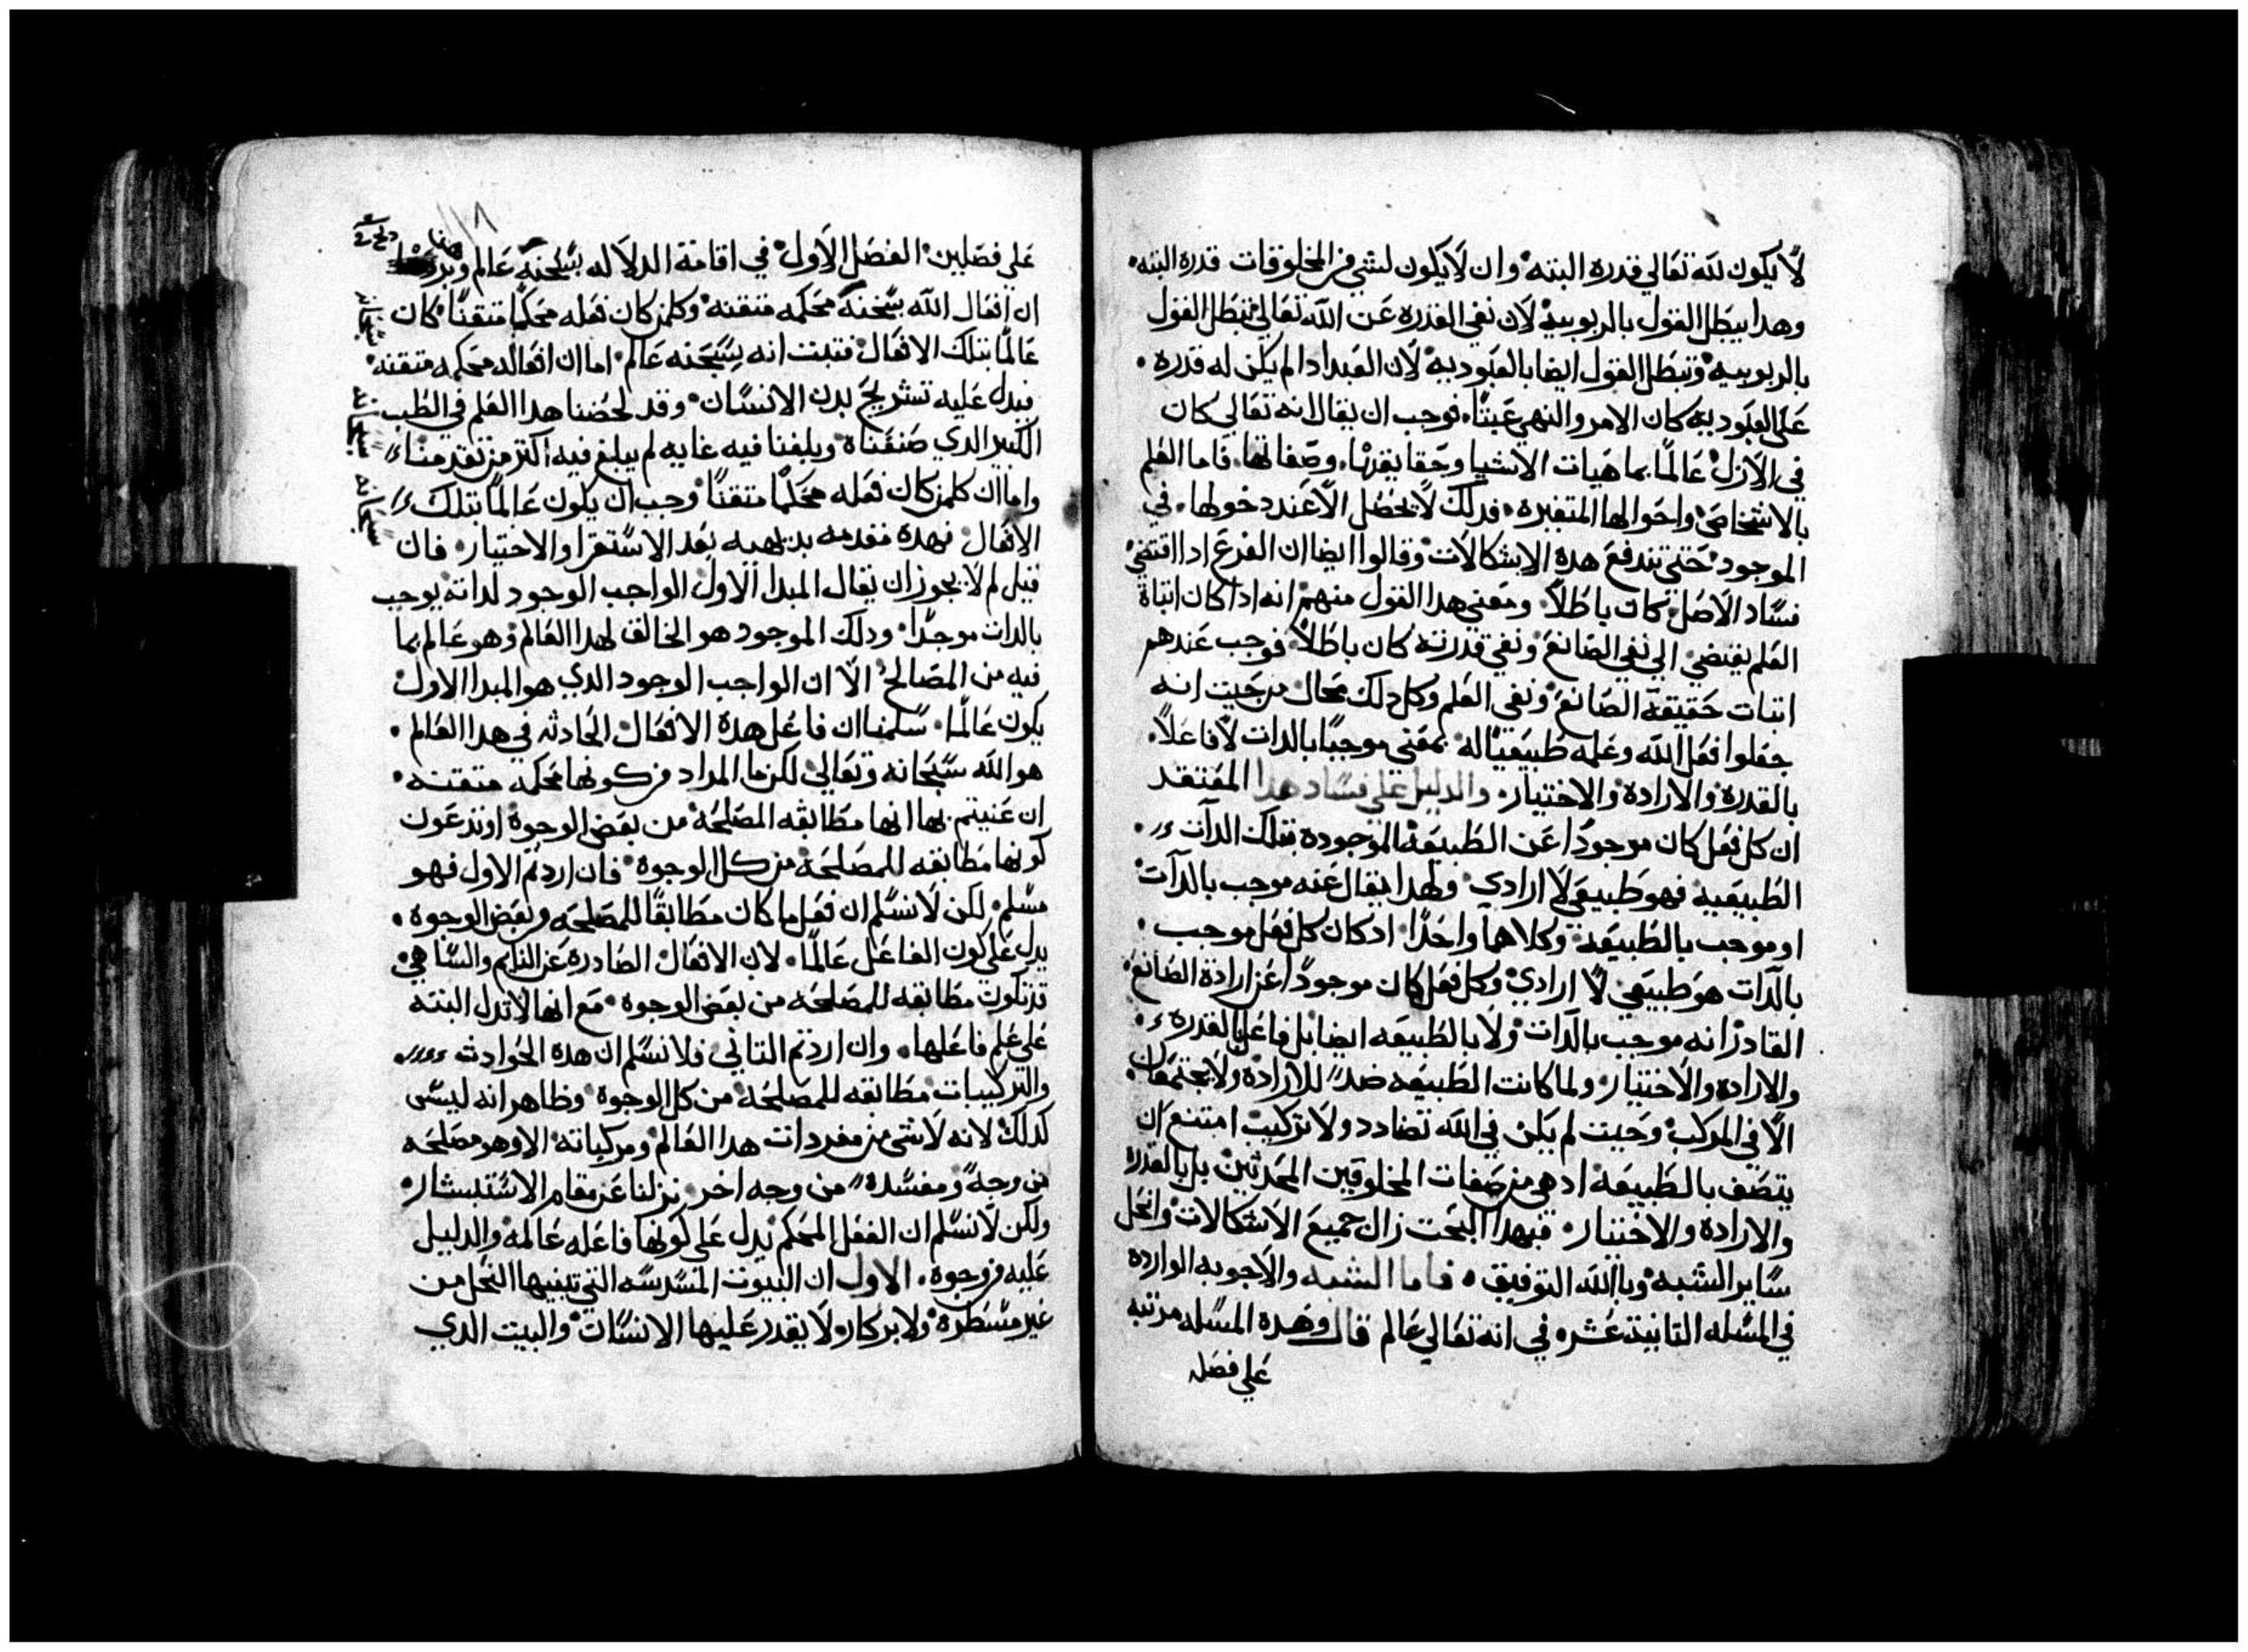 لا يكون لله تعالي قدره البته وان لا يكون لشي من المخلوقات قدره البته
وهدا يبطل القول بالربوبيه لان نفي القدره عن الله تعالي تبطل القول
بالربوبيه وتبطل القول ايضا بالعبوديه لان العبد ادا لم يكن له قدره
علي العبوديه كان الامر والنهي عبتا فوجب ان يقال انه تعالي كان
في الازل عالما بماهيات الاشيا وحقايقها وصفاتها فاما العلم
بالاشخاص واحوالها المتغيره فدلك لا يحصل الا عند دخولها في
الموجود حتي تندفع هده الاشكالات وقالوا ايضا ان الفرع ادا اقتضي
فساد الاصل كان باطلا ومعني هدا القول منهم انه ادا كان اتباة
العلم يفتضي الي نفي الصانع ونفي قدرته كان باطلا فوجب عندهم
اتبات حقيقة الصانع ونفي العلم وكل دلك محال من حيت انه
جعلوا فعل الله وعلمه طبيعيا له بمعني موجبا بالدات لا فاعلا
بالقدرة والارادة والاختيار والدليل علي فساد هدا المعتقد
ان كل فعل كان موجودا عن الطبيعة الموجوده بتلك الدات
الطبيعيه فهو طبيعي لا ارادي ولهدا يقال عنه موجب بالدات
او موجب بالطبيعه وكلاهما واحدا ادكان كل فعل موجب
بالدات هو طبيعي لا ارادي وكل فعل كان موجودا عن ارادة الصانع
القادر انه موجب بالدات ولا بالطبيعه ايضا بل فاعل بالقدرة
والارادة والاختيار ولما كانت الطبيعه ضد للارادة ولا يجتمعان
الا في المركب وحيت لم يكن في الله تضادد ولا تركيب امتنع ان
يتصف بالطبيعه اد هي من صفات المخلوقين المحدتين بل بالقدره
والارادة والاختيار فبهدا البحت زال جميع الاشكالات وانحل
ساير الشبه وبالله التوفيق فاما الشبه والاجوبه الوارده
في المسله التانية عشره في انه تعالي عالم قال وهده المسله مرتبه
علي فصلـ
علي فصلين الفصل الاول في اقامة الدلاله بسبحنه عالم
ان افعال الله سبحنه محكمه متقنه وكلمن كان فعله محكما متقنا كان
عالما بتلك الافعال فتبت انه سبحنه عالم اما ان افعاله محكمه متقنه
فيدل عليه تشريح بدن الانسان وقد لخصنا هدا العلم في الطب
الكبير الدي صنفناه وبلغنا فيه غايه لم يبلغ فيه اكتر من تقدمنا
واما ان كلمن كان فعله محكما متقنا وجب ان يكون عالما بتلك
الافعال فهده مقدمه بديهيه بعد الاستقرا والاختيار فان
قيل لم لا يجوز ان يقال المبدا الاول الواجب الوجود لداته يوجب
بالدات موجدا ودلك الموجود هو الخالق لهدا العالم وهو عالم بما
فيه من المصالح الا ان الواجب الوجود الدي هو المبدا الاول
يكون عالما سلمنا ان فاعل هدة الافعال الحادثه في هدا العالم
هو الله سبحانه وتعالي لكن ما المراد من كونها محكمه متقنه
ان عنيتم بها انها مطابقه المصلحه من بعض الوجوة او تدعون
كونها مطابقه للمصلحه من كل الوجوة فان اردتم الاول فهو
مسلم لكن لا نسلم ان فعل ما كان مطابقا للمصلحه من بعض الوجوة
يدل علي كون الفاعل عالما لان الافعال الصادره عن النايم والساهي
قد تكون مطابقه للمصلحه من بعض الوجوه مع انها لا تدل البته
علي علم فاعلها وان اردتم التاني فلا نسلم ان هده الحوادث
والتركيبات مطابقه للمصلحه من كل الوجوة وظاهر انه ليسى
كدلك لانه لا شي من مفردات هدا العالم ومركباته الا وهو مصلحه
من وجه ومفسدة من وجه اخر نزلنا عن مقام الاستبشار
ولكن لا نسلم ان الفعل المحكم يدل علي كونها فاعله عالمه والدليل
عليه من وجوه الاول ان البيوت المسدسه التي تبنيها النحل من
غير مسطرة ولا بركار ولا يقدر عليها الانسان والبيت الدي
١١٨
سبحانه
سبحانه
سبحانه